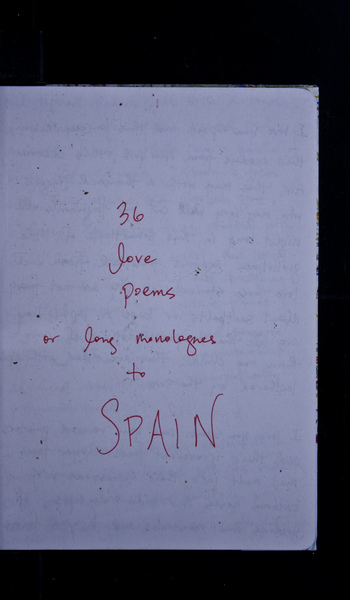 36
love
poems
or long monologues
to
SPAIN